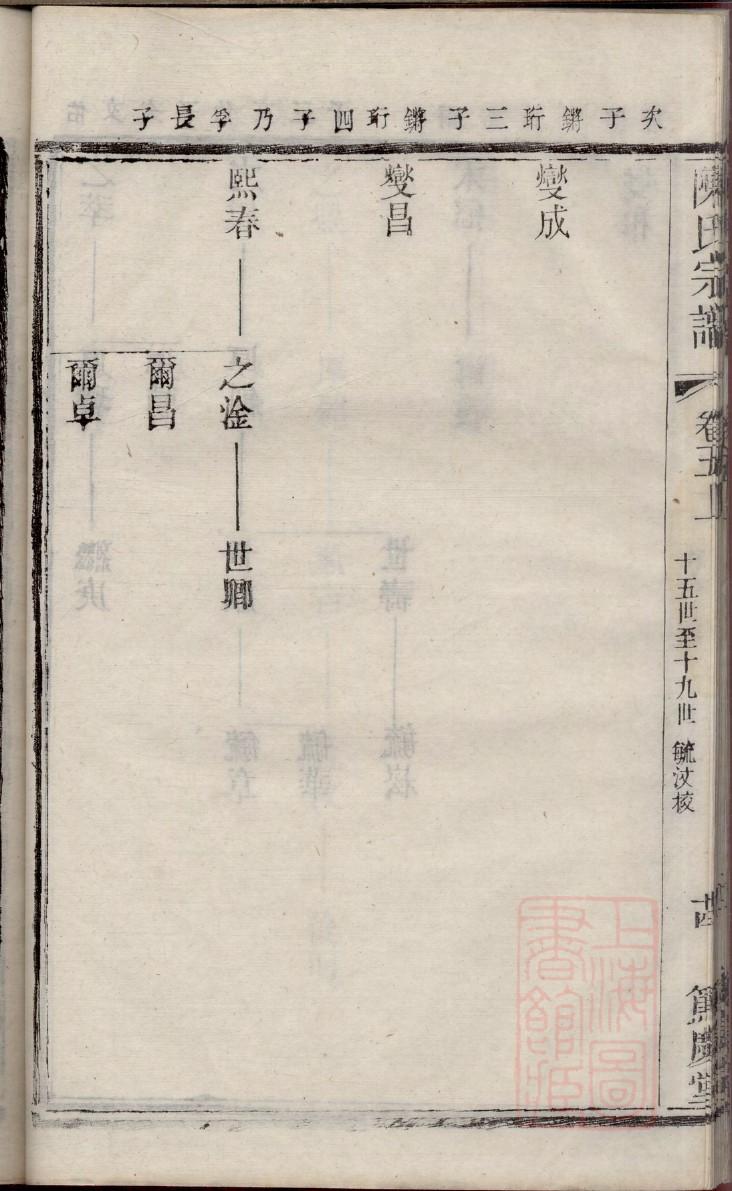 次子鏘珩三子鏘珩四子乃孚長子
燮成
燮昌
熙春
之淦
世卿
爾昌
爾卓
陳氏宗譜
卷五上
十五世至十九世
毓汶校
篤慶堂
上海圖書館